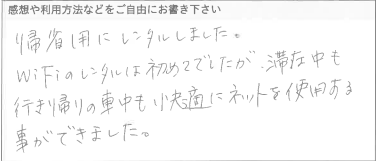 感想や利用方法などをご自由にお書き下さい
帰省用にレンタルしました。
WiFiのレンタルは初めてでしたが、滞在中も
行き帰りの車中も快適にネットを使用する
事ができました。